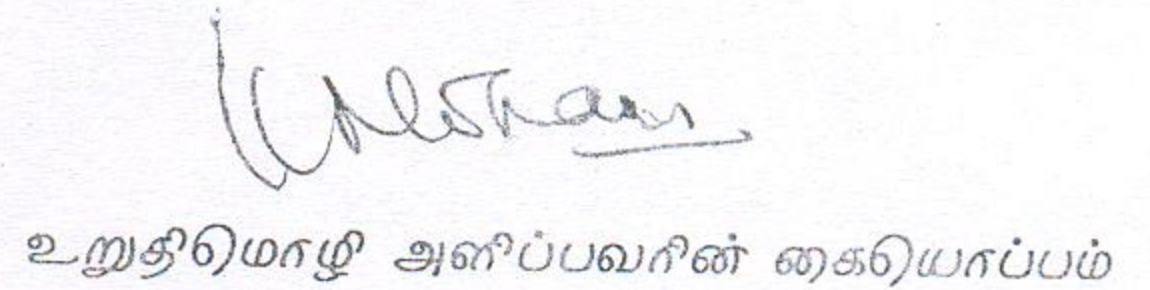 உறுதிமொழி அளிப்பவரின் கையொப்பம்